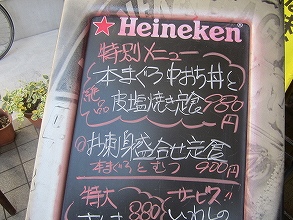 ★Heineken
特別メニュー
本まぐろ中おち丼と
絶品 皮塩焼き定食 980円
お刺身盛合せ定食
本まぐろとむつ 900円
特大 サービス
880